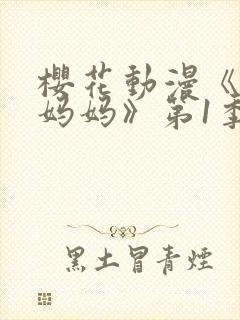 櫻花動漫《
妈妈》第1季
黑土冒青煙